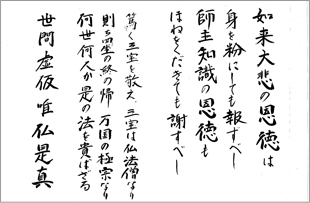 如来大悲の恩徳は
身を粉にしても報ずべし
師主知識の恩徳も
ほねをくだきても謝すべし
篤く三宝を敬え 三宝は仏法僧なり
則ち四生の終の帰 万国の極宗なり
何世何人か是の法を貴ばざる
世間虚仮唯仏是真